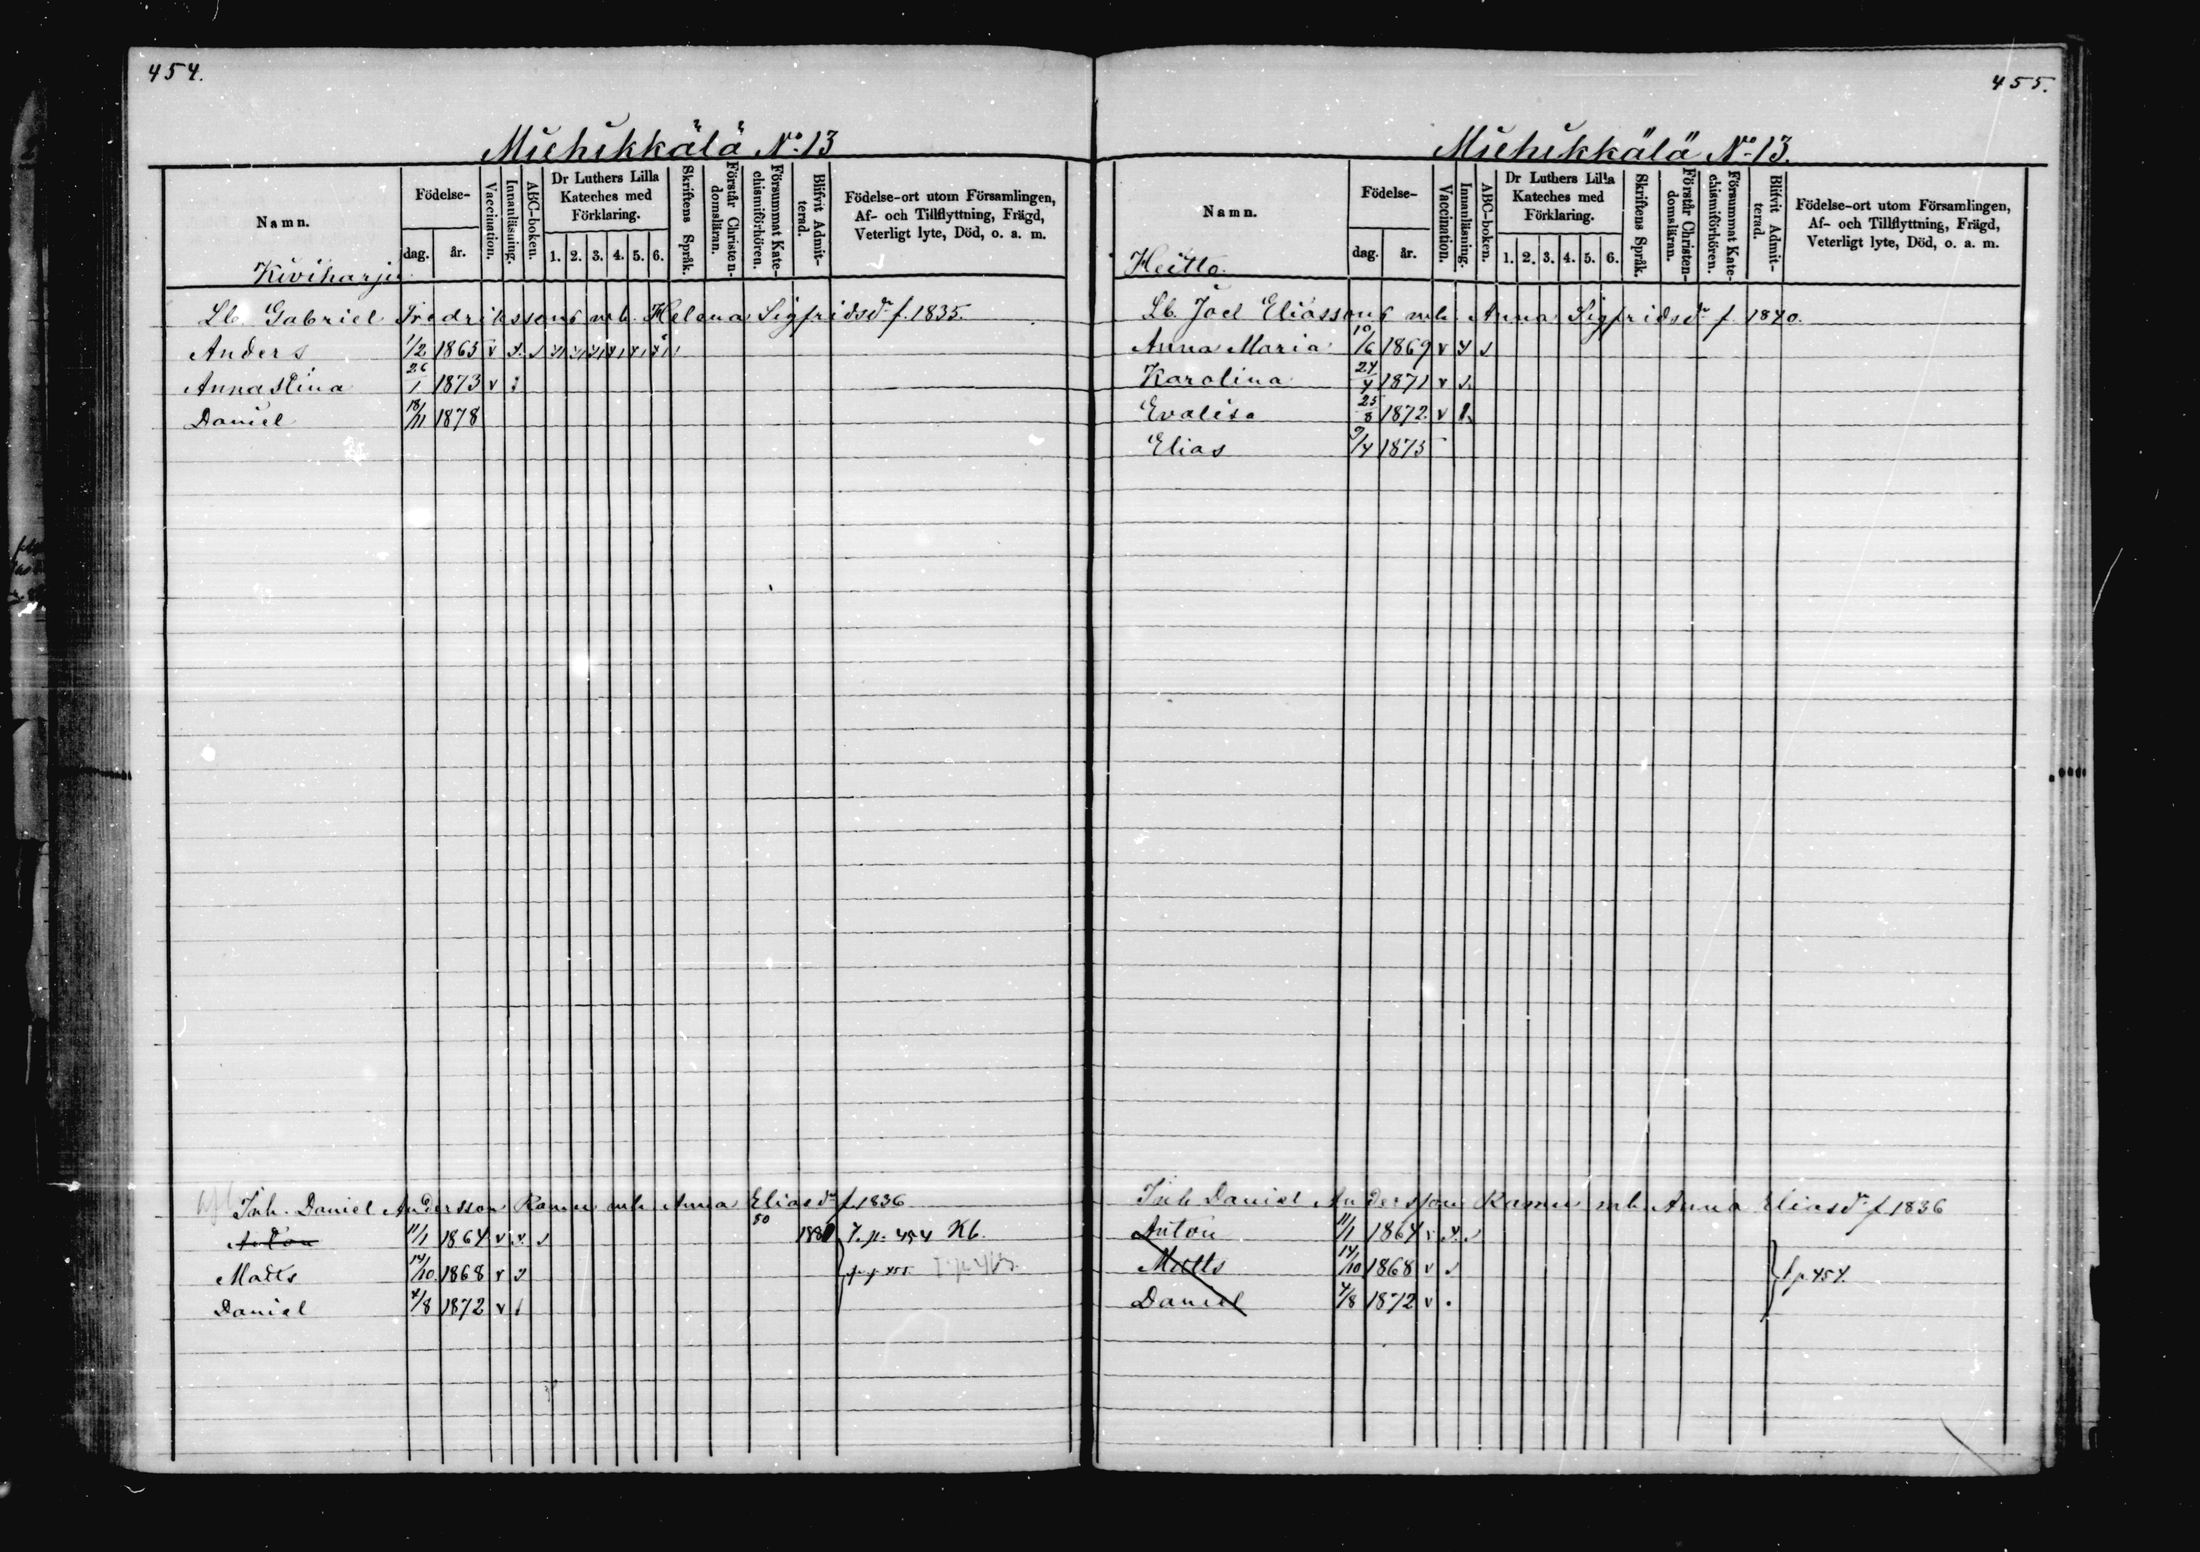 454.
Miehikkälä No 13
Namn.
Födelse-
dag.
år.
Vaccination.
Innanläsning.
ABC-boken.
Dr Luthers Lilla
Kateches med
Förklaring.
1. 2. 3. 4. 5. 6.
Skriftens Språk.
Förstår Christen-
domsläran.
Försummat Kate-
chismiförhören.
Blifvit Admit-
terad.
Födelse-ort utom Församlingen,
Af- och Tillflyttning, Frägd,
Veterligt lyte, Död, o. a. m.
Kiviharju
Lb. Gabriel Fredrikssons mh. Helena Sigfridsdr f. 1835.
Anders 1/2 1863 v
Anna Stina 26/1 1873 v
Daniel 18/11 1878
Inh. Daniel Andersson Ramu mh Anna Eliasdr f. 1836
Anton 11/1 1864 v 50 1880 T. p. 454 Kb.
Matts 14/10 1868 v f. p. 455
Daniel 4/8 1872 v
455.
Miehikkälä No 13.
Namn.
Födelse-
dag.
år.
Vaccination.
Innanläsning.
ABC-boken.
Dr Luthers Lilla
Kateches med
Förklaring.
1. 2. 3. 4. 5. 6.
Skriftens Språk.
Förstår Christen-
domsläran.
Försummat Kate-
chismiförhören.
Blifvit Admit-
terad.
Födelse-ort utom Församlingen,
Af- och Tillflyttning, Frägd,
Veterligt lyte, Död, o. a. m.
Heitto.
Lb. Joel Eliassons mh. Anna Sigfridsdr f. 1840.
Anna Maria 10/6 1869 v
Karolina 24/4 1871 v
Evalisa 25/8 1872 v
Elias 9/4 1875
Inh Daniel Andersson Ramu mh Anna Eliasdr f 1836
Anton 11/1 1864 v
Matts 14/10 1868 v f. p. 454.
Daniel 4/8 1872 v